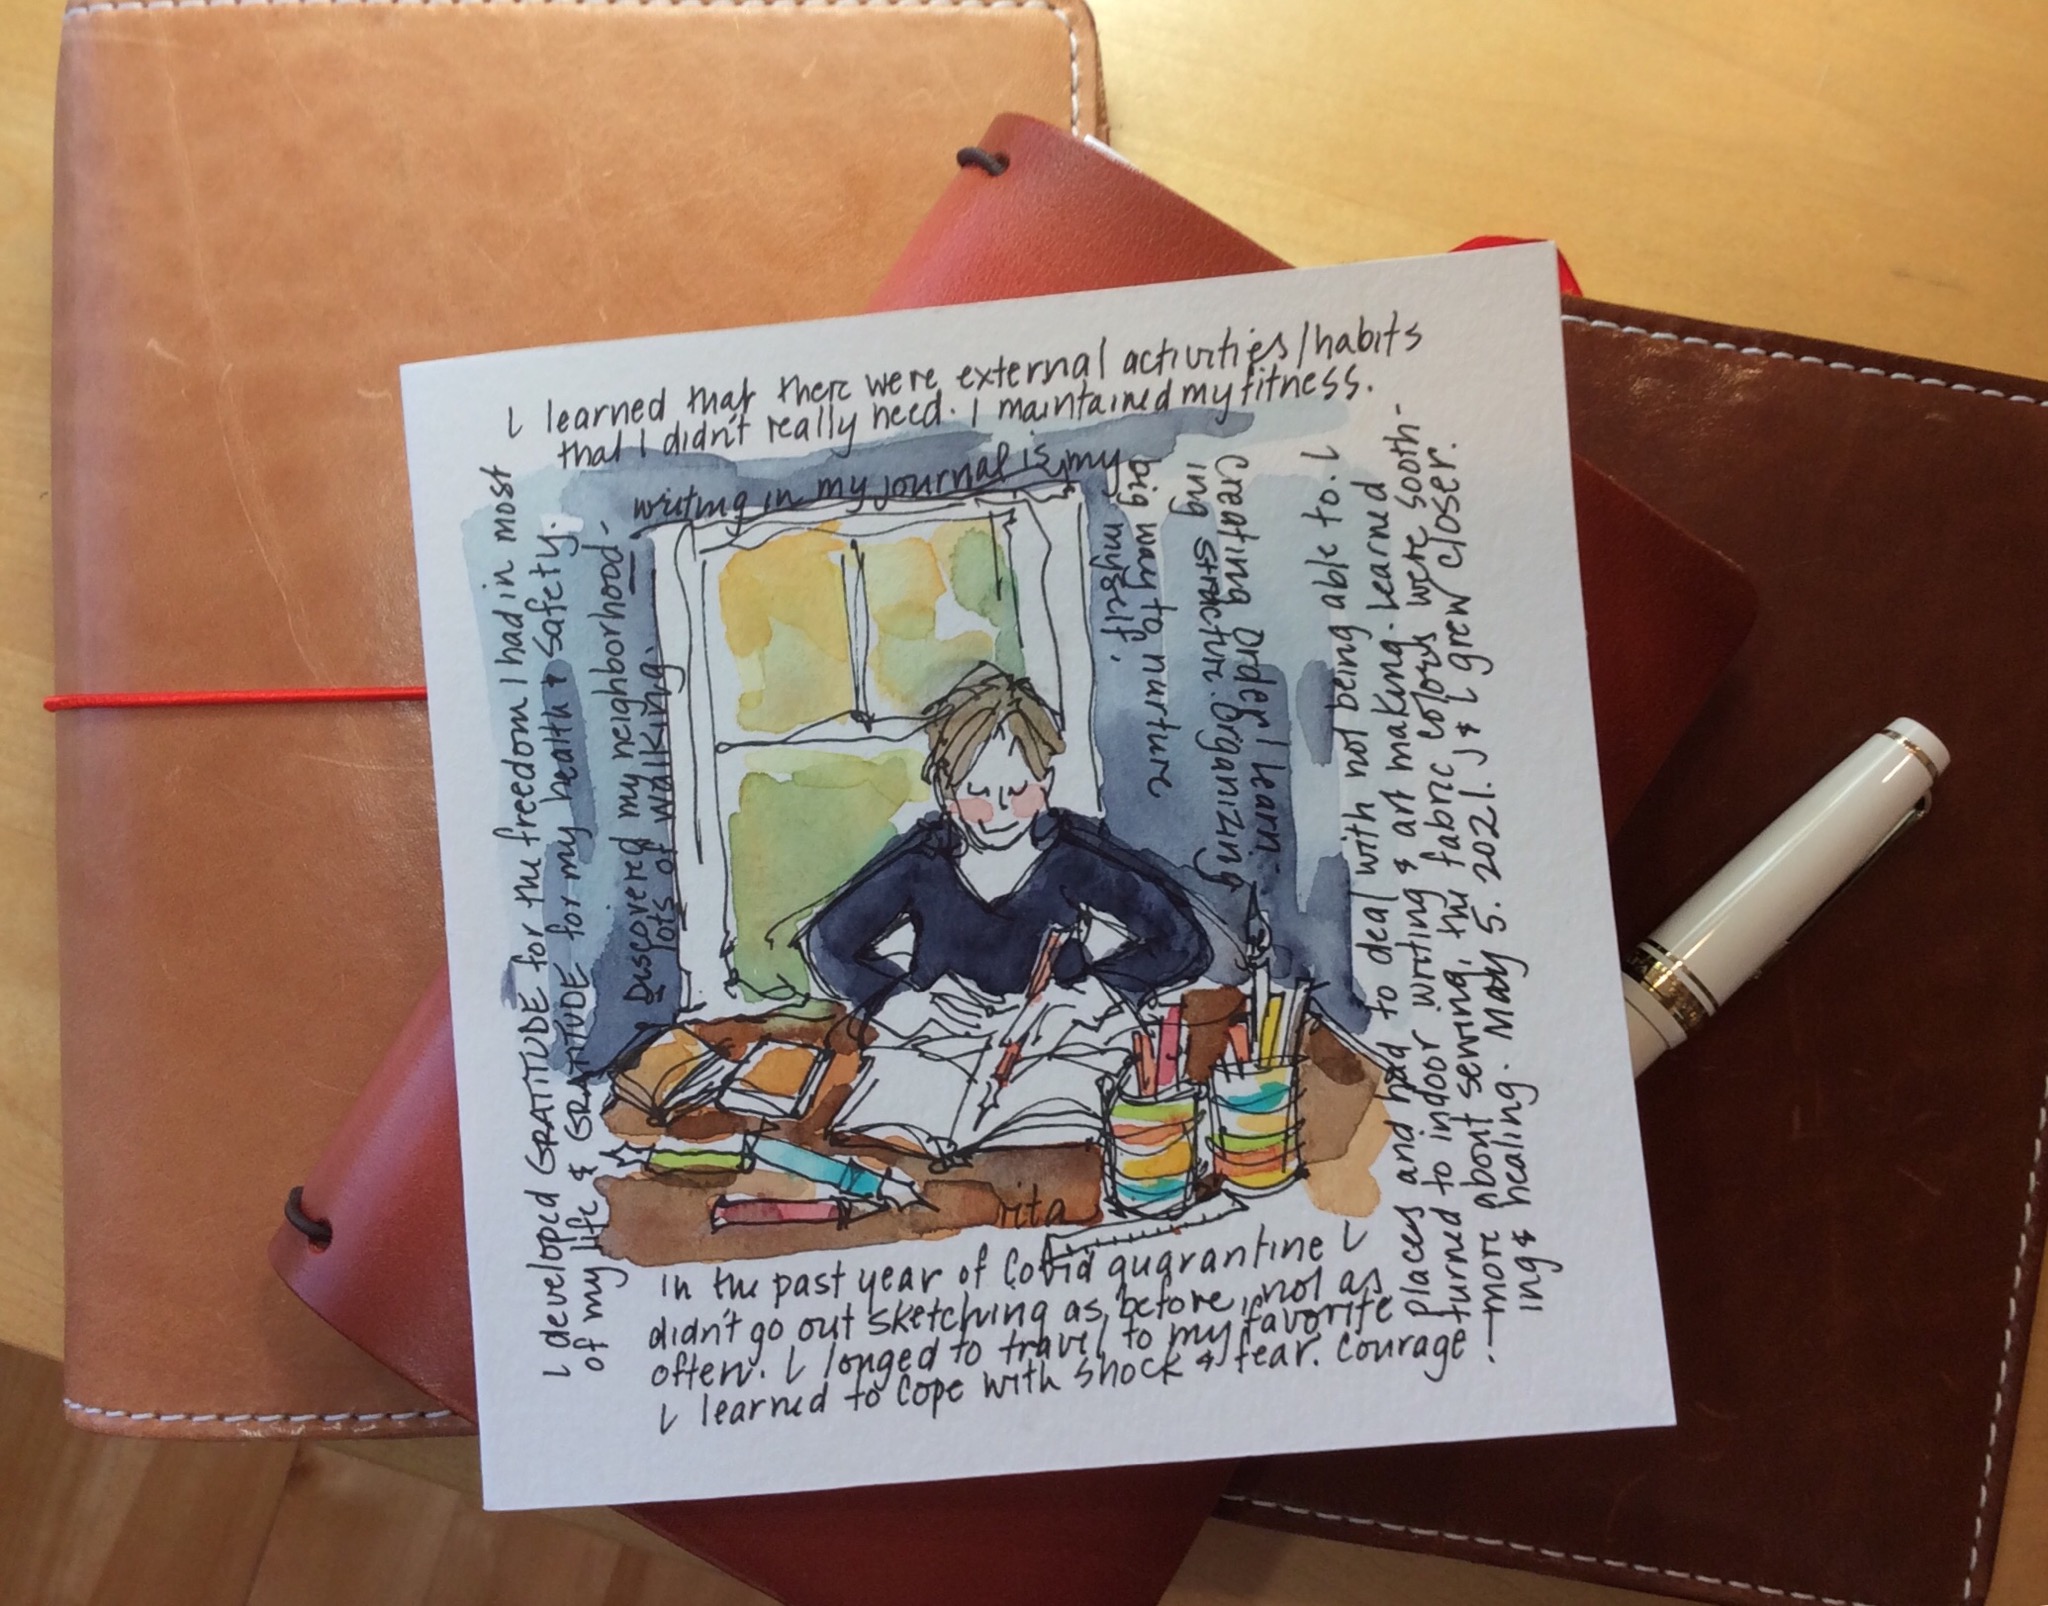 I learned that there were external activities/habits
that I didn't really need. I maintained my fitness.
writing in my journal is my
big way to nurture
myself.
Creating order I learn
ing structure. Organizing
I developed GRATITUDE for the freedom I had in most
of my life & GRATITUDE for my health & safety.
Discovered my neighborhood-
lots of walking.
rita
In the past year of Covid quarantine I
didn't go out sketching as before, not as
often. I longed to travel to my favorite
I learned to cope with shock & fear. Courage!
places and had to deal with not being able to. I
turned to indoor writing & art making. Learned
more about sewing, the fabric colors were sooth-
ing & healing. May 5. 2021. J & I grew closer.